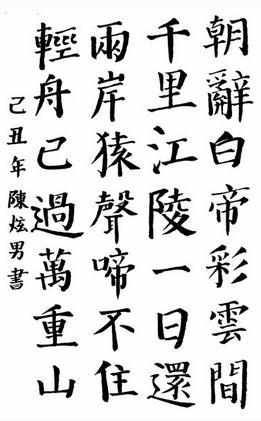 朝辭白帝彩雲間
千里江陵一日還
兩岸猿聲啼不住
輕舟已過萬重山
己丑年陳炫男書